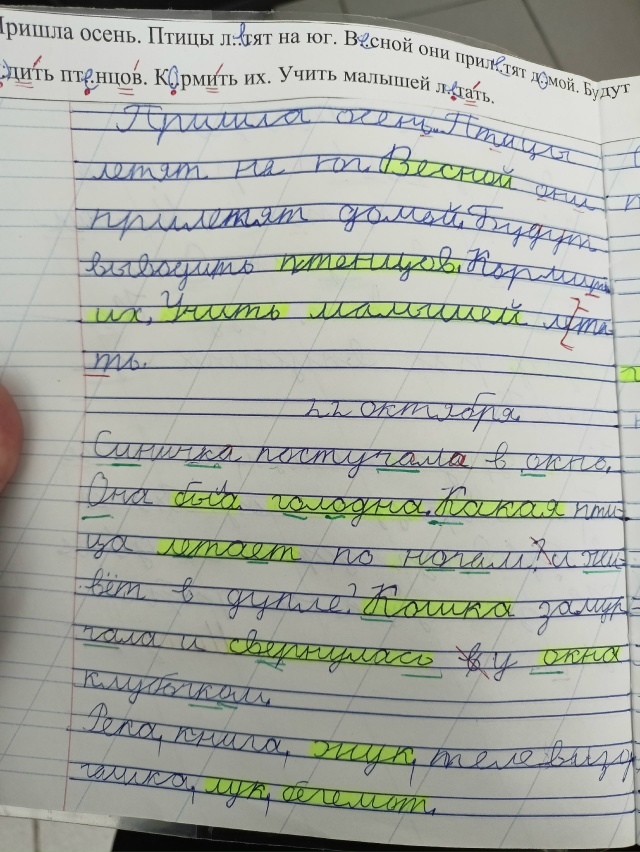 Пришла осень. Птицы л..тят на юг. Весной они прил..тят домой. Будут
дить птенцов. Кормить их. Учить малышей летать.
Пришла осень. Птицы
летят на юг. Весной они
прилетят домой. Будут
выводить птенцов. Кормить
их. Учить малышей лета
ть.
22 октября.
Синичка постучала в окно.
Она была голодна. Какая пти-
ца летает по ночам? и жи-
вёт в дупле? Кошка замур-
чала и свернулась у окна
клубочком.
Река, книга, жук, телевизу
чашка, лук, бегемот.